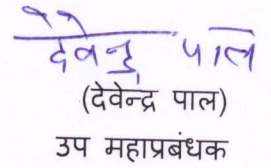 देवेन्द्र पाल
(देवेन्द्र पाल)
उप महाप्रबंधक